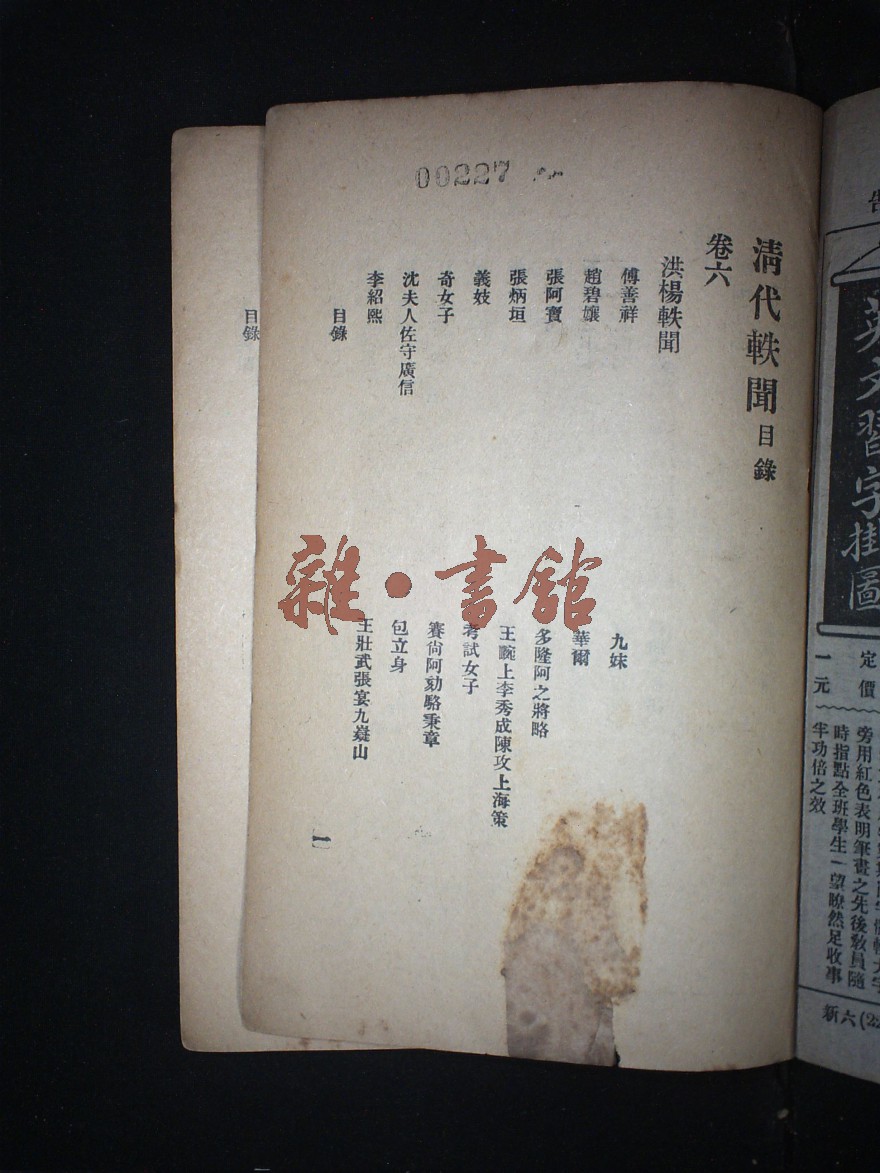 00227
清代軼聞目錄
卷六
洪楊軼聞
傅善祥
九妹
趙碧孃
華爾
張阿寶
多隆阿之將略
張炳垣
王畹上李秀成陳攻上海策
義妓
考試女子
奇女子
賽尙阿劾駱秉章
沈夫人佐守廣信
包立身
李紹熙
王壯武張宴九嶷山
目錄
一
目錄
雜·書館
英文習字掛圖
定價
一元
旁用紅色表明筆畫之先後敎員隨
時指點全班學生一望瞭然足收事
半功倍之效
新六